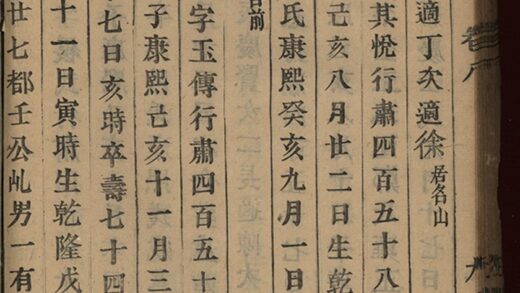 卷八
九
適丁次適徐居名山
其悅行肅四百五十八
己亥八月廿二日生乾
氏康熙癸亥九月一日
前
字玉傳行肅四百五十
子康熙己亥十一月三
七日亥時卒壽七十四
十一日寅時生乾隆戊
廿七都壬公乩男一有